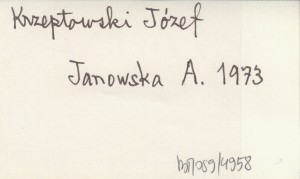 Krzeptowski Józef
Janowska A. 1973
/059/4958